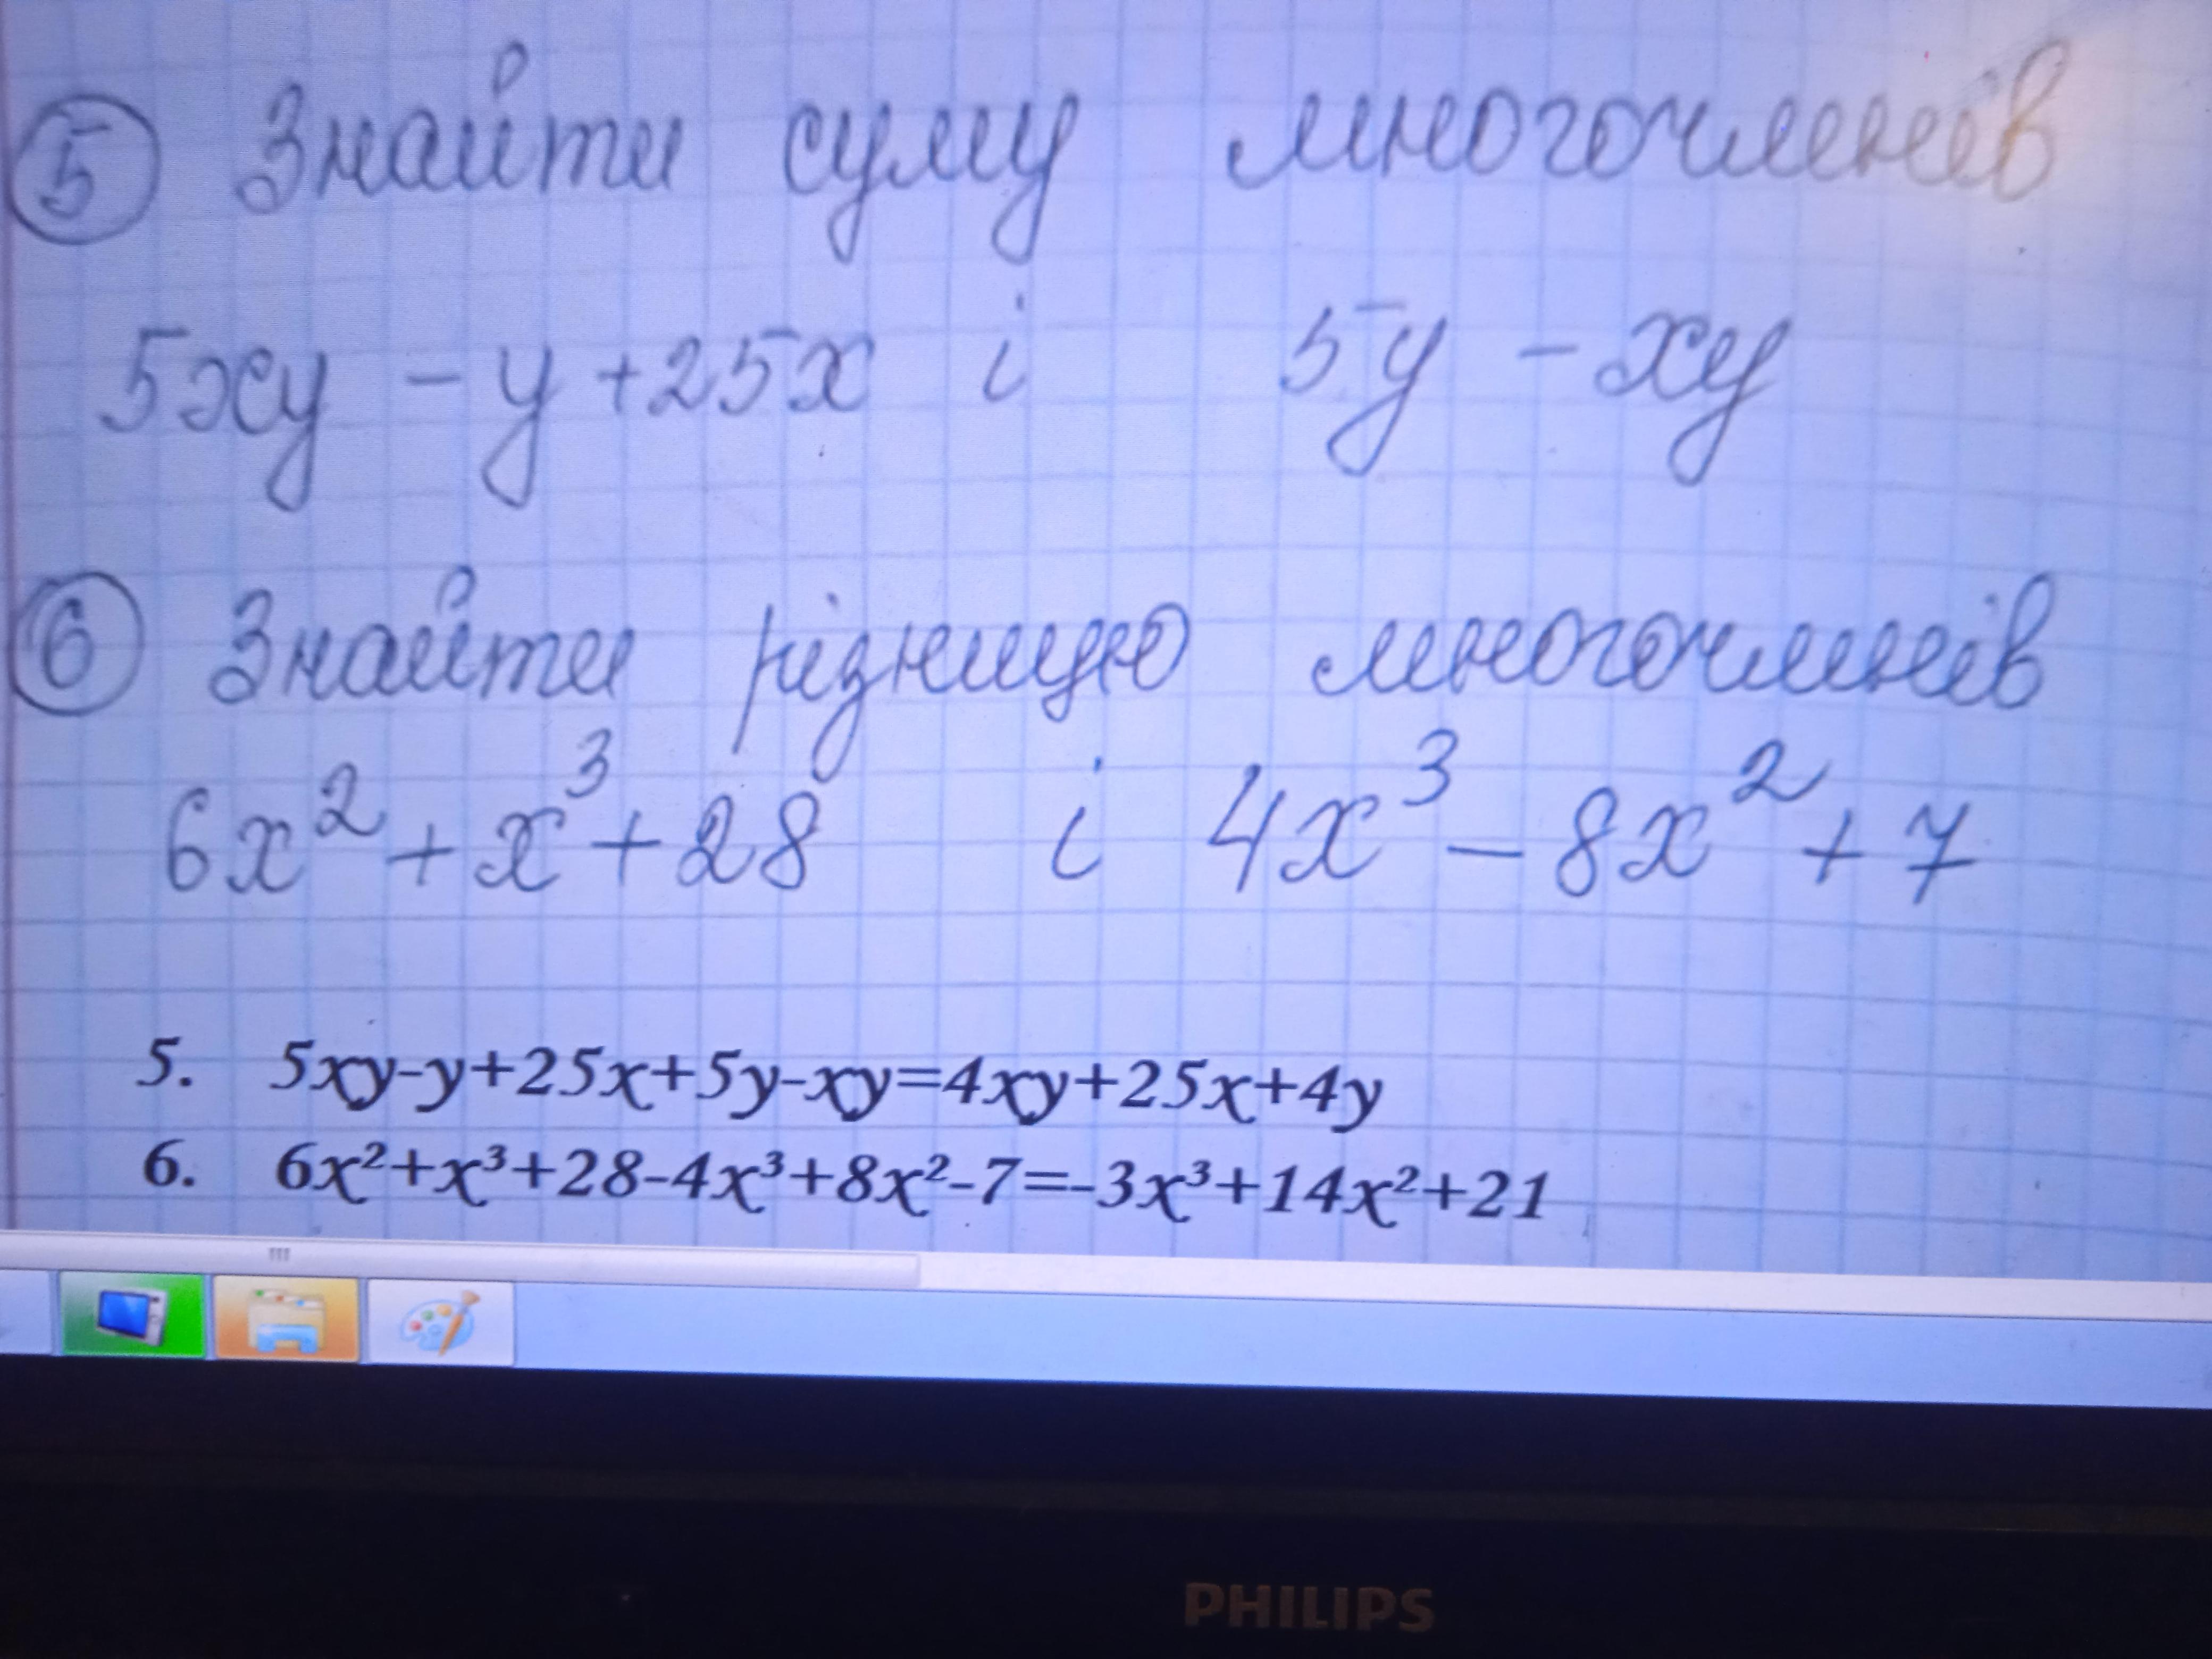 5 Знайти суму многочленів
5xy - y + 25x і 5y - xy
6 Знайти різницю многочленів
6x² + x³ + 28 і 4x³ - 8x² + 7
5. 5xy-y+25x+5y-xy=4xy+25x+4y
6. 6x²+x³+28-4x³+8x²-7=-3x³+14x²+21
PHILIPS